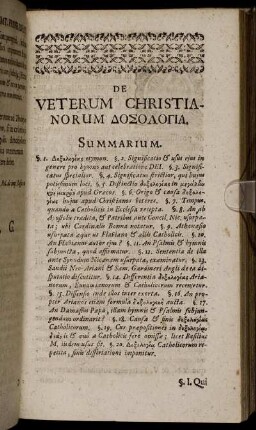 DE
VETERUM CHRISTIA-
NORUM ΔΟΞΟΛΟΓΙΑ.
SUMMARIUM.
§. 1. Δοξολογίας etymon. §. 2. Significatio & usus ejus in
genere pro hymno aut celebratione DEI. §. 3. Signifi-
catus specialior. §. 4. Significatus strictior, qui hujus
potissimum loci. §. 5. Distinctio δοξολογίας in μεγάλην
καὶ μικρὰν apud Græcos. §. 6. Origo & causa δοξολο-
γίας hujus apud Christianos veteres. §. 7. Tempus,
quando a Catholicis in Ecclesia recepta. §. 8. An ab
Apostolis tradita, & Patribus ante Concil. Nic. usurpa-
ta; ubi Cardinalis Bonna notatur. §. 9. Athanasio
usurpata quin & Flaviano & aliis Catholicis. §. 10.
An Flavianus autor ejus? §. 11. An Psalmis & hymnis
subjuncta, quod affirmatur. §. 12. Sententia de illa
ante Synodum Nicænam usurpata, examinatur. §. 13.
Sandii Neo-Ariani & Sam. Gardineri Angli de ea dis-
putatio discutitur. §. 14. Differentia δοξολογίας Aria-
norum, Eunomianorum & Catholicorum recensetur.
§. 15. Dissensio inde illos inter exorta. §. 16. An pro-
pter Arianos etiam formula δοξολογίας aucta. §. 17.
An Damasus Papa, illam hymnis & Psalmis subjun-
gendam ordinarit? §. 18. Causa & finis δοξολογίας
Catholicorum. §. 19. Cur præpositiones in δοξολογίας
διὰ & ἐν a Catholicis fere omissæ; licet Basilius
M. iisdem usus sit. §. 20. Δοξολογία Catholicorum re-
petita, finis dissertationi imponitur.
§. I. Qui